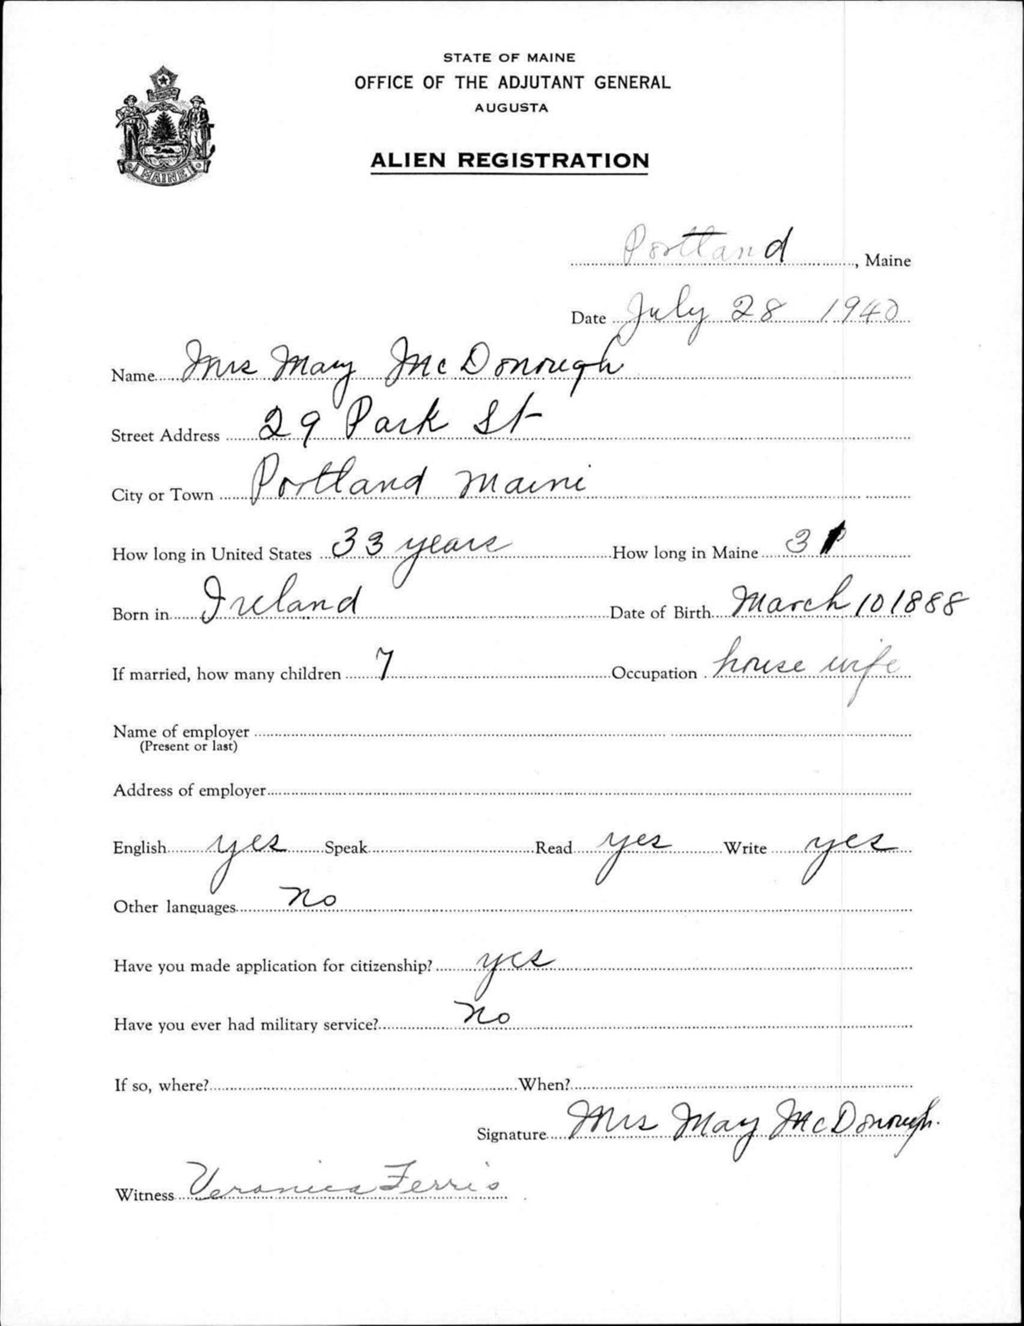 STATE OF MAINE
OFFICE OF THE ADJUTANT GENERAL
AUGUSTA
ALIEN REGISTRATION
MAINE
Portland, Maine
Date July 28 1940
Name Mrs May McDonough
Street Address 29 Park St
City or Town Portland Maine
How long in United States 33 years How long in Maine 31
Born in Ireland Date of Birth March 10 1888
If married, how many children 7 Occupation house wife
Name of employer
(Present or last)
Address of employer
English yes Speak Read yes Write yes
Other languages no
Have you made application for citizenship? yes
Have you ever had military service? no
If so, where? When?
Signature Mrs May McDonough.
Witness Veronica Ferris